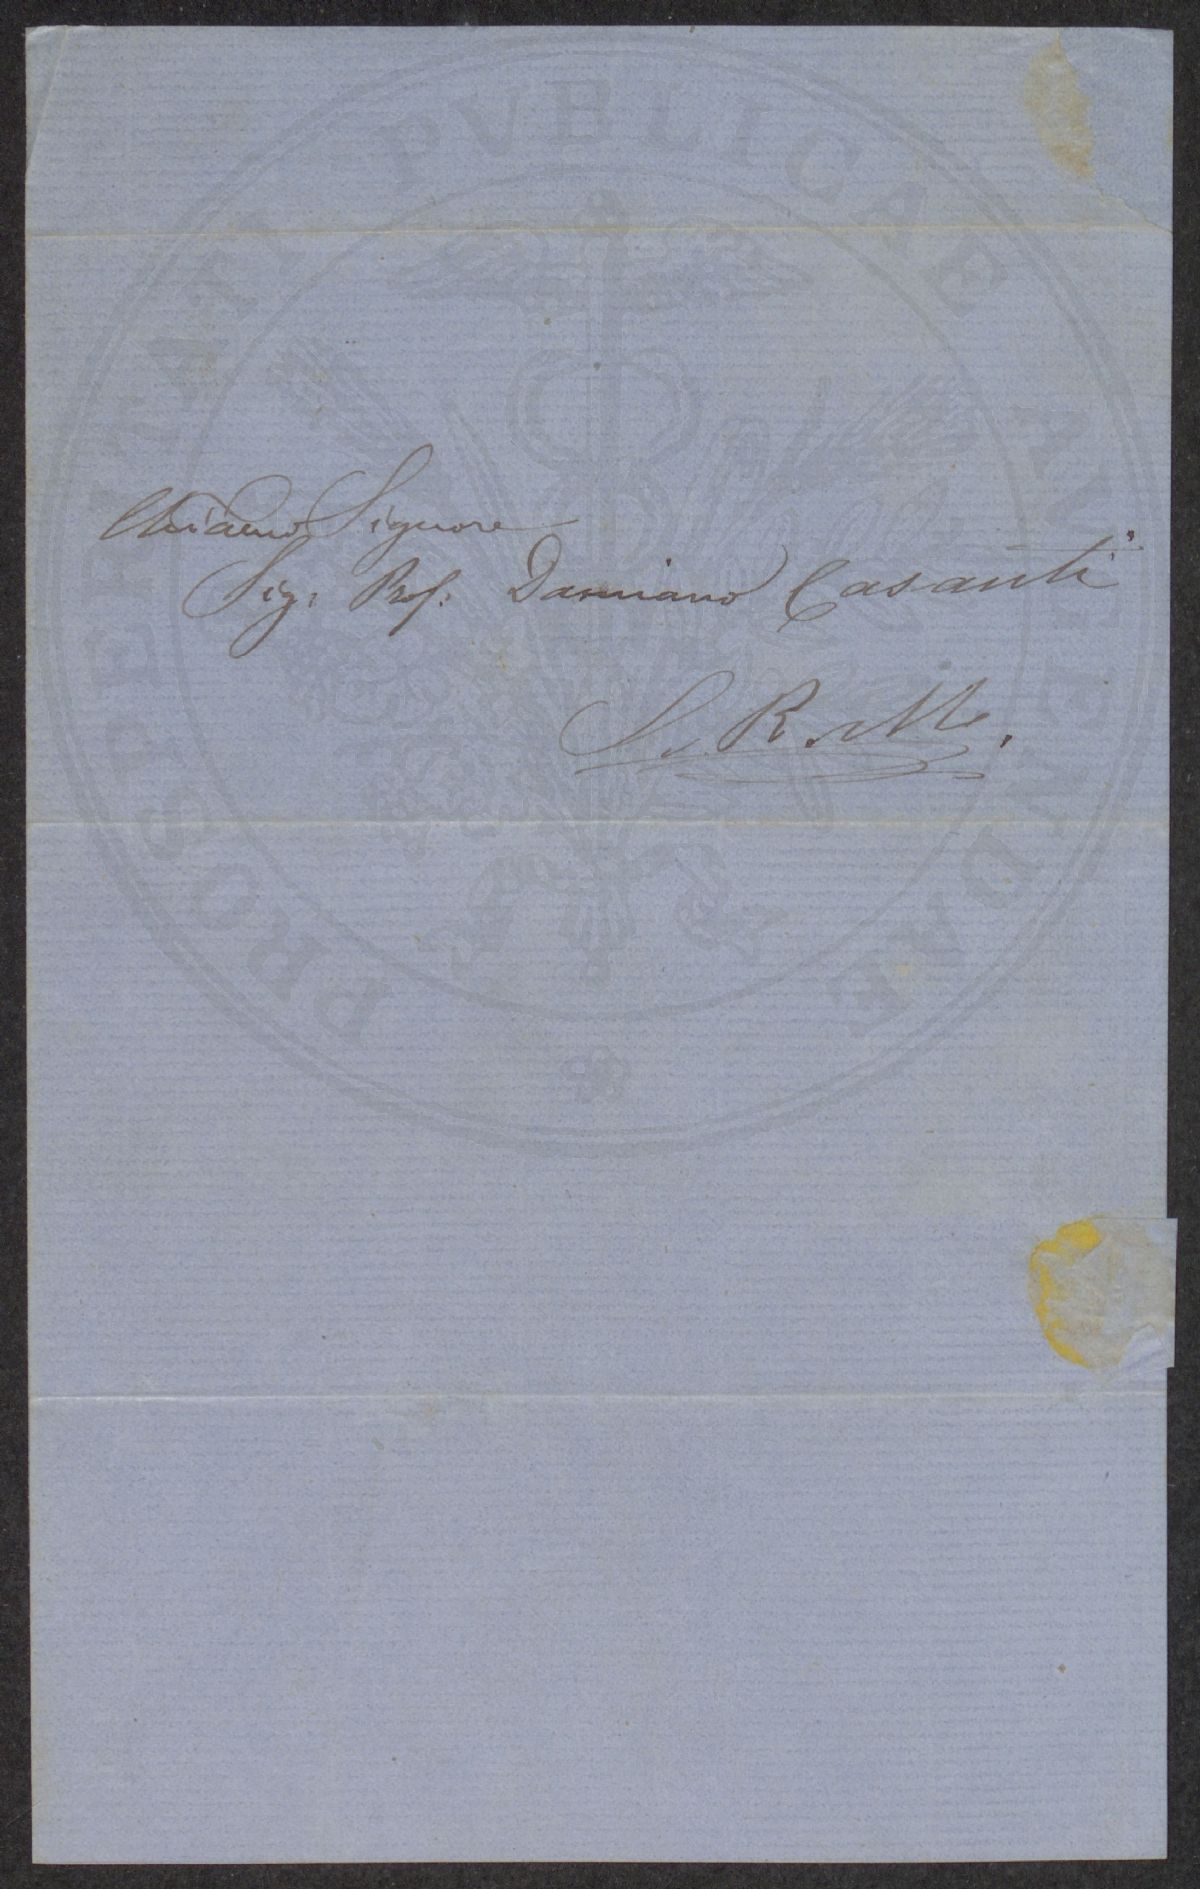 PROSPERITATI PVBLICAE AVGENDAE
Chiarmo Signore
Sig: Prof: Damiano Casanti
S. R. M.